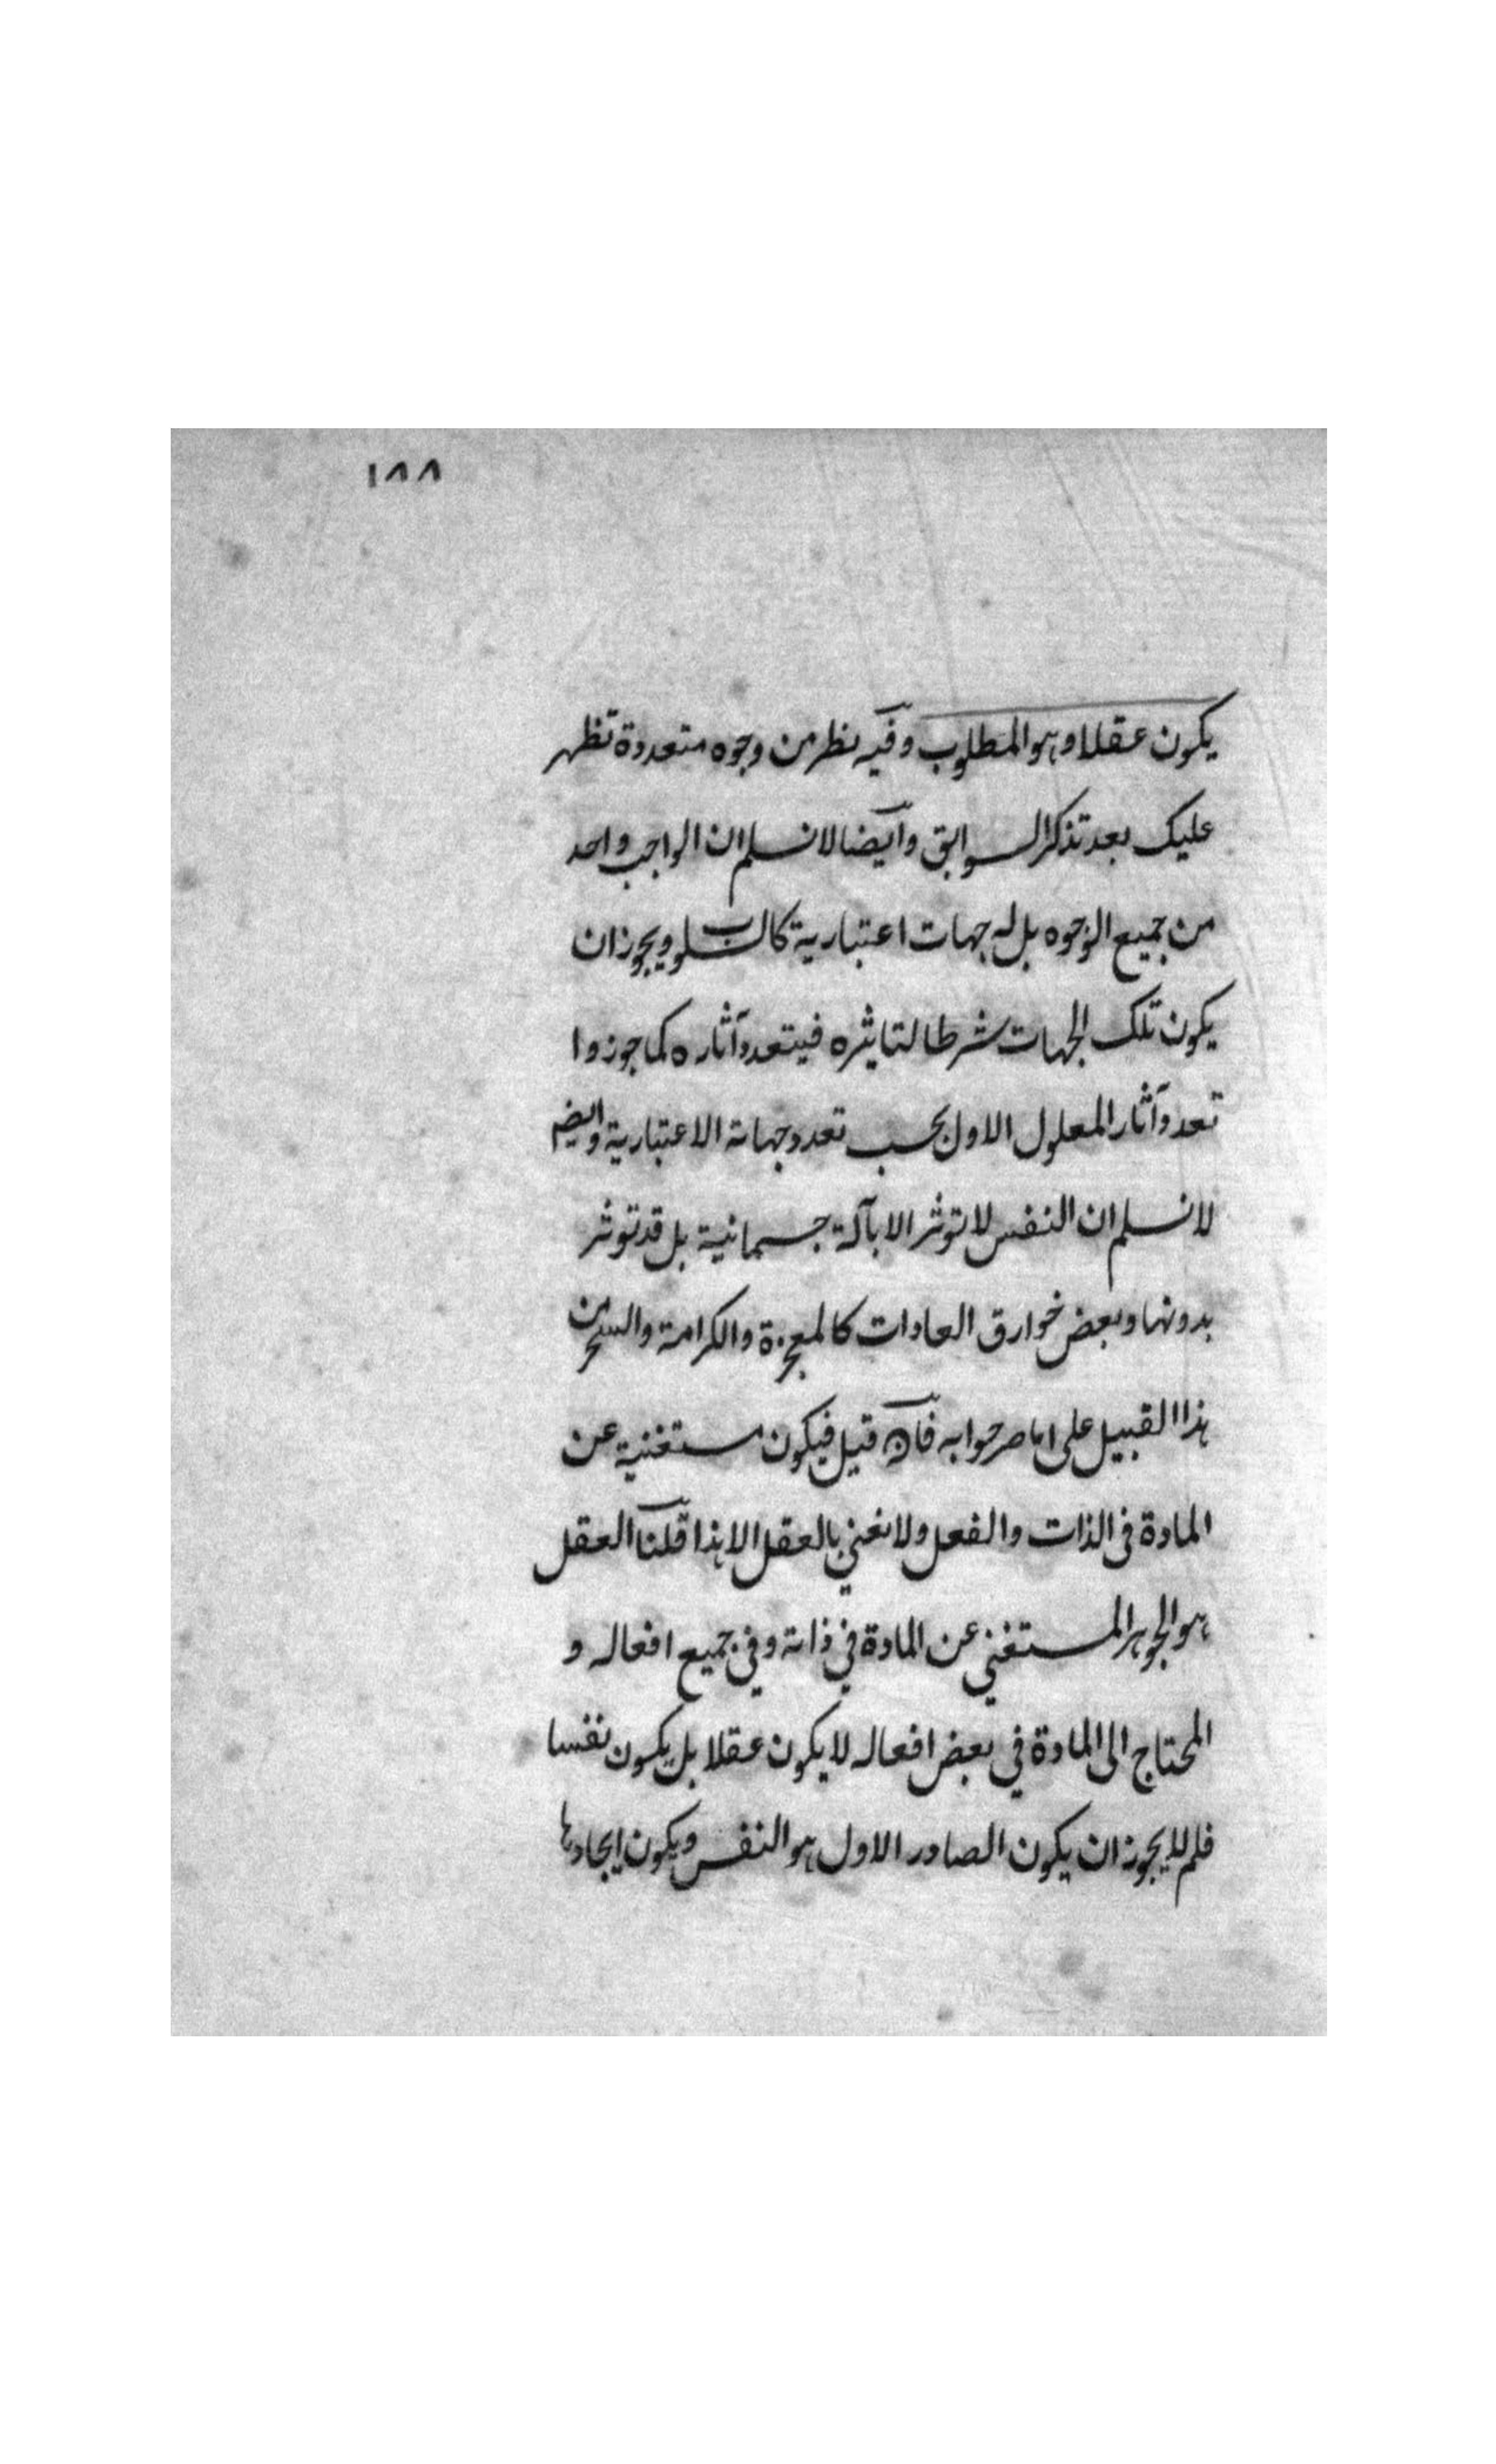 ١٨٨
يكون عقلا وهو المطلوب وفيه نظر من وجوه متعددة تظهر
عليك بعد تذكر السوابق وايضا لا نسلم ان الواجب واحد
من جميع الوجوه بل له جهات اعتبارية كالسلوب ويجوز ان
يكون تلك الجهات شرطا لتاثيره فيتعدد آثاره كما جوزوا
تعدد آثار المعلول الاول بحسب تعدد جهاته الاعتبارية وايضا
لا نسلم ان النفس لا توثر الا بآلة جسمانية بل قد توثر
بدونها وبعض خوارق العادات كالمعجزة والكرامة والسحر من
هذا القبيل على ما صرحوا به فان قيل فيكون مستغنية عن
المادة فى الذات والفعل ولا نعني بالعقل الا هذا قلنا العقل
هو الجوهر المستغني عن المادة في ذاته وفي جميع افعاله و
المحتاج الى المادة في بعض افعاله لا يكون عقلا بل يكون نفسا
فلم لا يجوز ان يكون الصادر الاول هو النفس ويكون ايجادها